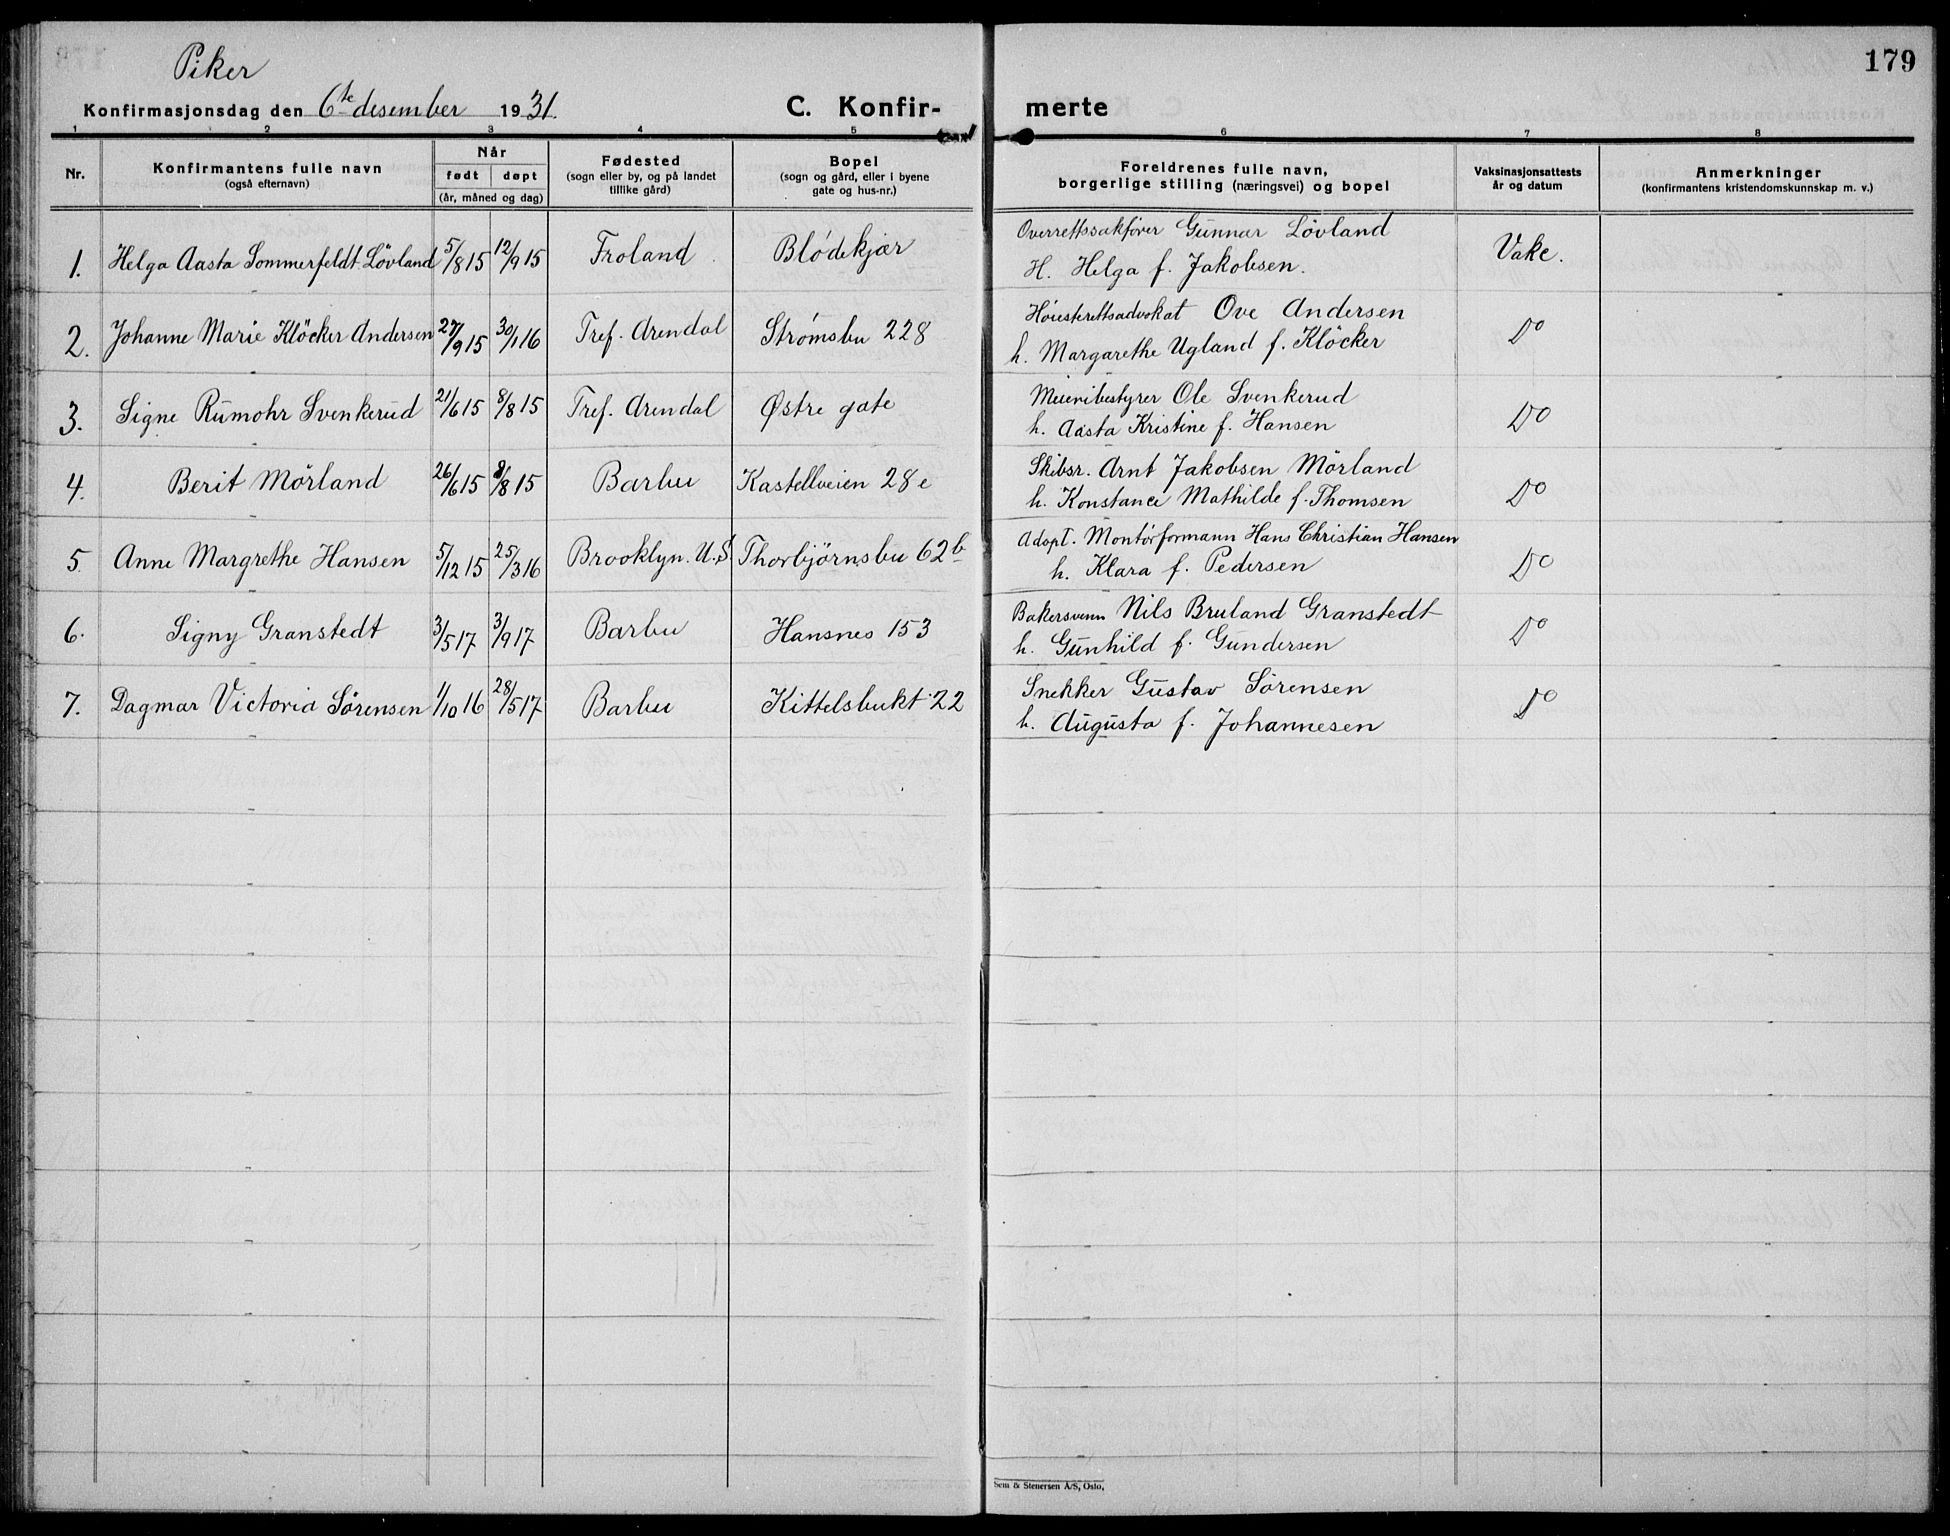 179
Piker
Konfirmasjonsdag den 6te desember 1931. C. Konfir- merte
1 2 3 4 5 6 7 8
Nr. Konfirmantens fulle navn (også efternavn) Når født døpt (år, måned og dag) Fødested (sogn eller by, og på landet tillike gård) Bopel (sogn og gård, eller i byene gate og hus-nr.) Foreldrenes fulle navn, borgerlige stilling (næringsvei) og bopel Vaksinasjonsattests år og datum Anmerkninger (konfirmantens kristendomskunnskap m. v.)
1. Helga Aasta Sommerfeldt Lövland 5/8 15 12/9 15 Froland Blødekjær Overrettssakfører Gunnar Lövland
H. Helga f. Jakobsen. Vake.
2. Johanne Marie Klöcker Andersen 27/9 15 30/1 16 Tref. Arendal Strømsbu 228 Höiesterettsadvokat Ove Andersen
h. Margarethe Ugland f. Klöcker Do
3. Signe Rumohr Svenkerud 21/6 15 8/8 15 Tref. Arendal Østre gate Meieribestyrer Ole Svenkerud
h. Aasta Kristine f. Hansen Do
4. Berit Mörland 26/6 15 8/8 15 Barbu Kastellveien 28 c Skibsr. Arnt Jakobsen Mörland
h. Konstance Mathilde f. Thomsen Do
5. Anne Margrethe Hansen 5/12 15 25/3 16 Brooklyn. U.S. Thorbjørnsbu 62 b Adopt. Montørformann Hans Christian Hansen
h. Klara f. Pedersen Do
6. Signy Granstedt 3/5 17 3/9 17 Barbu Hansnes 153 Bakersvenn Nils Bruland Granstedt
h. Gunhild f. Gundersen Do
7. Dagmar Victoria Sörensen 1/10 16 28/5 17 Barbu Kittelsbukt 22 Snekker Gustav Sörensen
h. Augusta f. Johannesen Do
Sem & Stenersen A/S, Oslo.